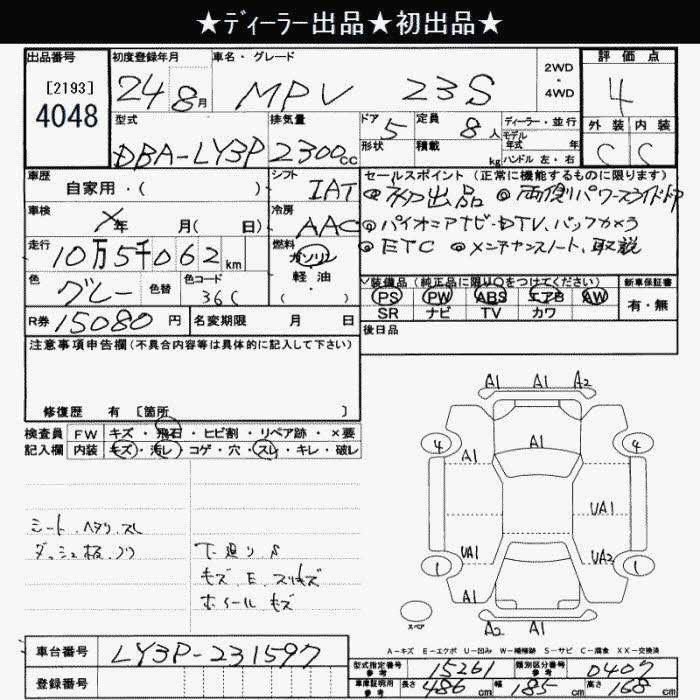 ★ディーラー出品★初出品★
出品番号 初度登録年月 車名・グレード 評価点
[2193]
4048
24 8月 MPV 23S 2WD・4WD 4
型式 排気量 ドア 定員 ディーラー・並行 外装 内装
DBA-LY3P 2300cc 5 8人 モデル年式 年 C C
形状 積載 kg ハンドル 左・右
車歴 シフト セールスポイント(正常に機能するものに限ります)
自家用・( ) IAT ◎初出品 ◎両側パワースライドドア
車検 ×年 月( 日) 冷房 AAC ◎パイオニアナビ・DTV、バックカメラ
走行 10万5千062km 燃料 ガソリン・軽油・( ) ◎ETC ◎メンテナンスノート、取説
色 グレー 色替 色コード 36C 装備品(純正品に限り○をつけてください) 新車保証書
PS PW ABS エアB AW 有・無
SR ナビ TV カワ
R券 15080円 名変期限 月 日 後日品
注意事項申告欄(不具合内容等は具体的に記入して下さい)
修復歴 有 [箇所 ]
検査員 FW キズ・飛石・ヒビ割・リペア跡・×要
記入欄 内装 キズ・汚レ・コゲ・穴・スレ・キレ・破レ
A1 A1 A2
4 4
A1 A1
UA1
UA1 UA2
1 1
A1
A2 A1
スペア
シート、ヘタリ、スレ
ダッシュ板、ノリ
下廻りS
モズ、E、スリキズ
ホイールキズ
A-キズ E-エクボ U-凹み W-補修跡 S-サビ C-腐食 XX-交換済
車台番号 LY3P-231597
登録番号
型式指定番号 参考 15261 類別区分番号 参考 0407
車庫証明用 参考 長さ 486cm 幅 185cm 高さ 168cm